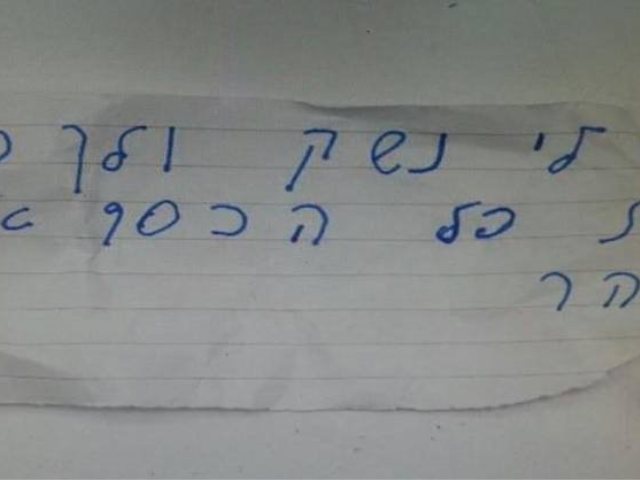 לי נשק ולך
כל הכסף
הר